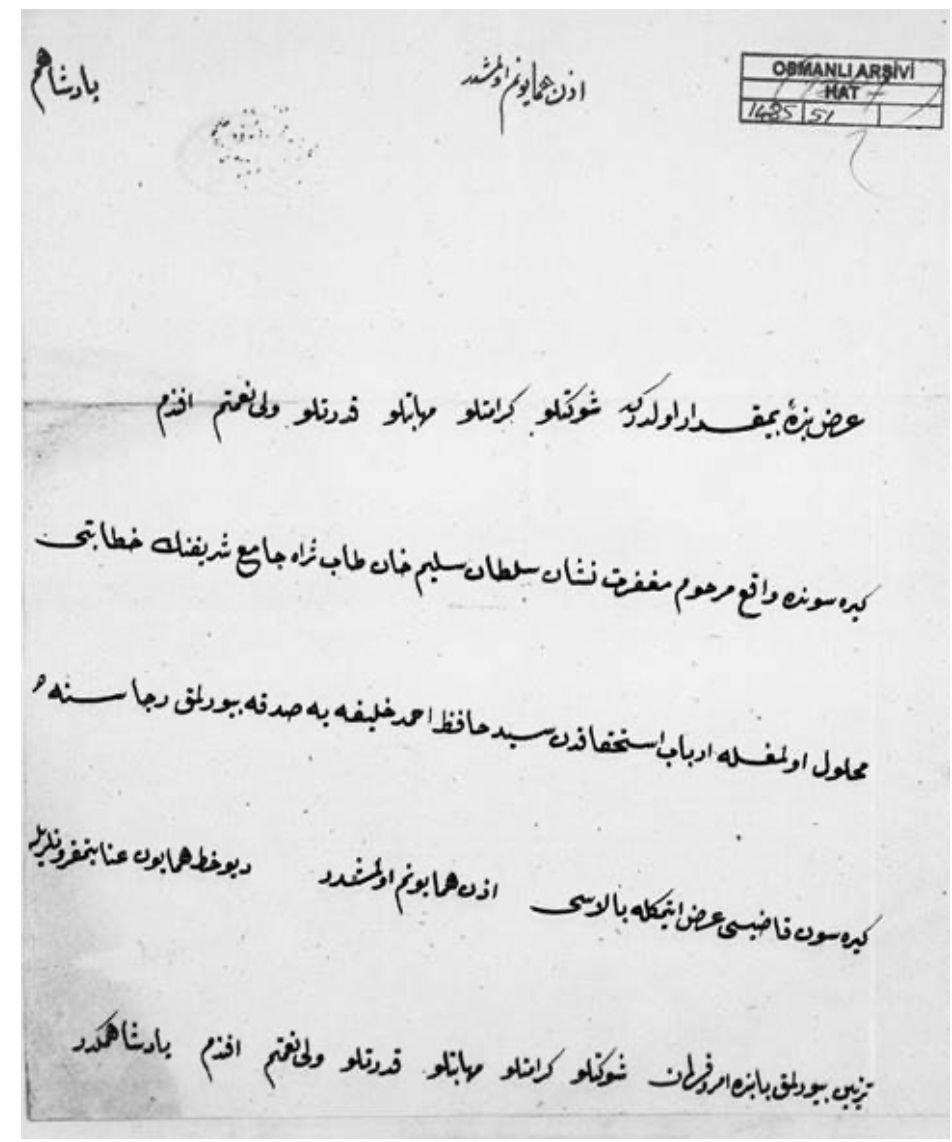 OSMANLI ARŞİVİ
HAT
1485 51
اذن همایونم اولمشدر
پادشاهم
عرض بندهٔ بیمقدار اولدر که شوکتلو کرامتلو مهابتلو قدرتلو ولی نعمتم افندم
کیره سونده واقع مرحوم مغفرت نشان سلطان سلیم خان طاب ثراه جامع شریفنك خطابتی
محلول اولمغله ارباب استحقاقدن سید حافظ احمد خلیفه یه صدقه بیورلمق رجاسنه
کیره سون قاضیسی عرض ایتمکله بالاسی اذن همایونم اولمشدر دیو خط همایون عنایتمقرونلریله
تزیین بیورلمق بابنده امر و فرمان شوکتلو کرامتلو مهابتلو قدرتلو ولی نعمتم افندم پادشاهمکدر